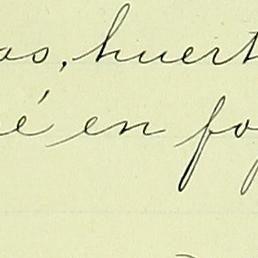 as, huert
é en fo